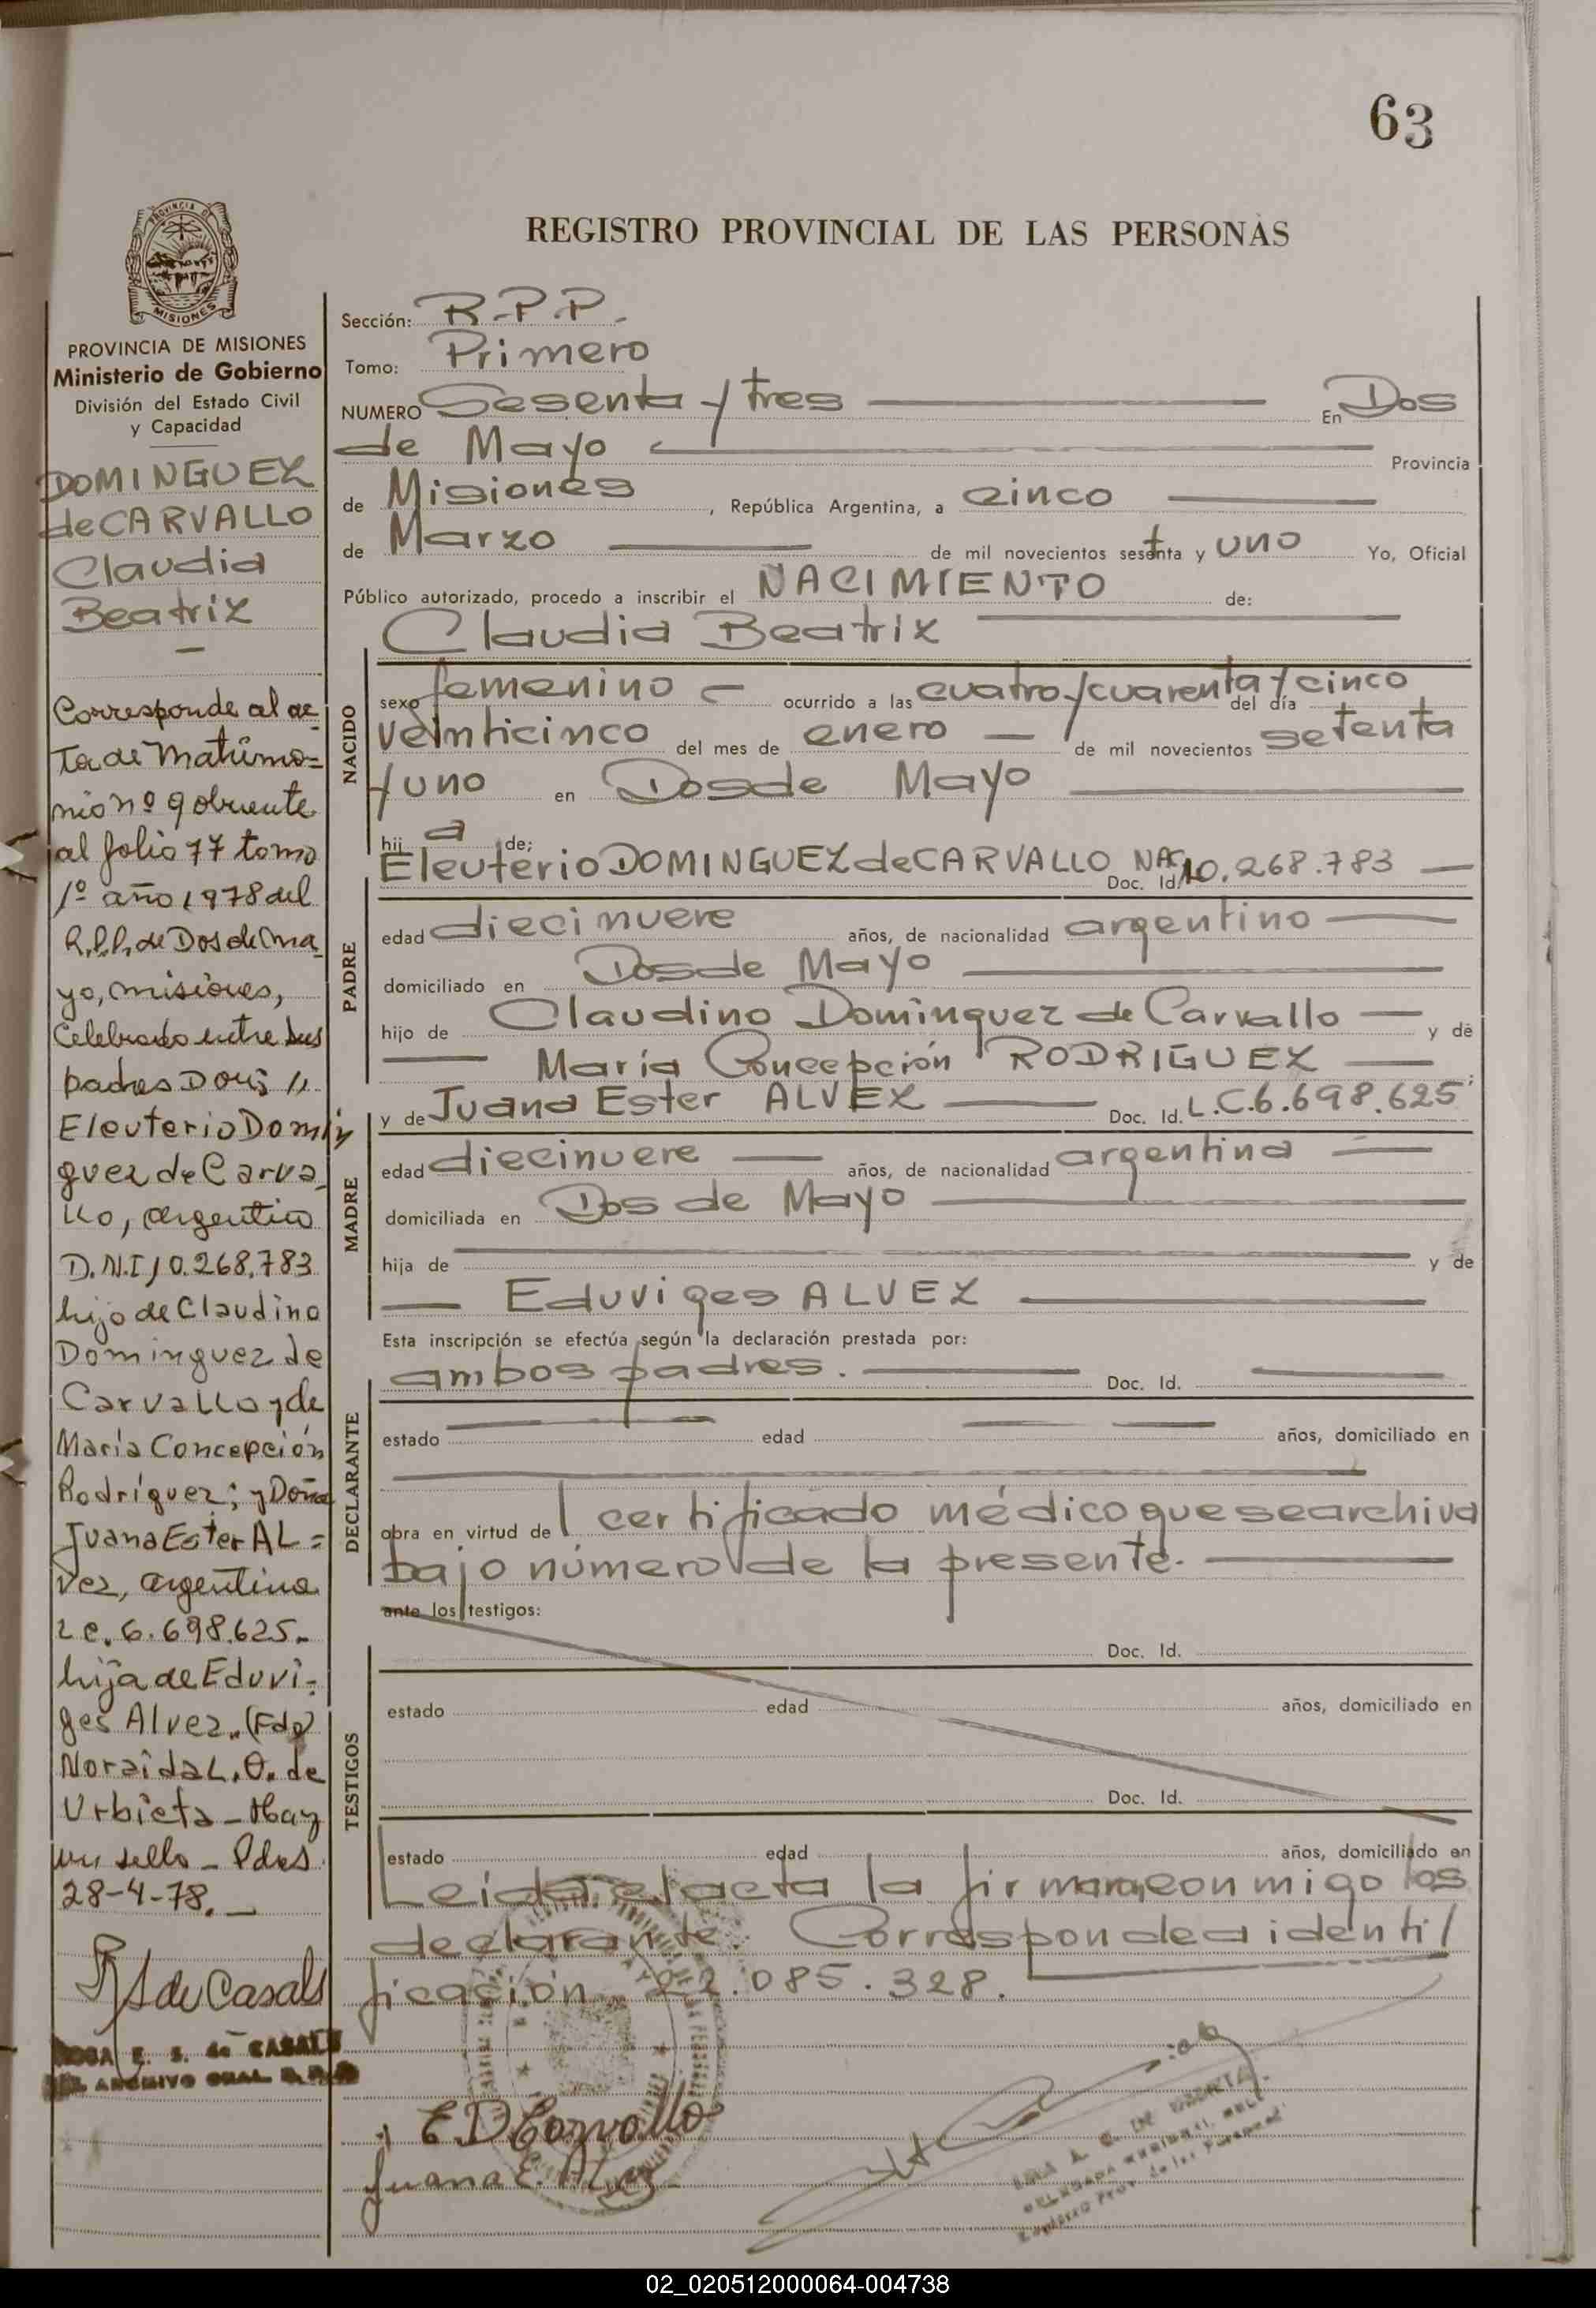 63
REGISTRO PROVINCIAL DE LAS PERSONAS
PROVINCIA DE
MISIONES
PROVINCIA DE MISIONES
Ministerio de Gobierno
División del Estado Civil
y Capacidad
DOMINGUEZ
de CARVALLO
Claudia
Beatriz
Corresponde al ac-
ta de Matrimo=
nio nº 9 obrante
al folio 77 tomo
1º año 1978 del
R.P.P. de Dos de Ma
yo, Misiones,
Celebrado entre sus
padres Don: //
Eleuterio Domin
guez de Carva
llo, argentino
D.N.I 10.268.783
hijo de Claudino
Dominguez de
Carvallo y de
María Concepción
Rodríguez; y Doña
Juana Ester AL=
vez, argentina
L.C. 6.698.625.
hija de Eduvi-
ges Alvez. (Fdo)
Noraida L. O. de
Urbieta - Hay
un sello - Pdas
28-4-78. _
de Casals
ROSA E. S. de CASALS
Sección: R.P.P.
Tomo: Primero
NUMERO Sesenta y tres En Dos
de Mayo Provincia
de Misiones, República Argentina, a cinco
de Marzo de mil novecientos setenta y uno Yo, Oficial
Público autorizado, procedo a inscribir el NACIMIENTO de:
Claudia Beatriz
NACIDO
sexo femenino ocurrido a las cuatro y cuarenta y cinco del día
veinticinco del mes de enero de mil novecientos setenta
y uno en Dos de Mayo
hij a de;
Eleuterio DOMINGUEZ de CARVALLO Doc. Id. 10.268.783
PADRE
edad diecinueve años, de nacionalidad argentino
domiciliado en Dos de Mayo
hijo de Claudino Dominguez de Carvallo y de
María Concepción RODRIGUEZ
y de Juana Ester ALVEZ Doc. Id. L.C.6.698.625
MADRE
edad diecinueve años, de nacionalidad argentina
domiciliada en Dos de Mayo
hija de y de
Eduviges ALVEZ
Esta inscripción se efectúa según la declaración prestada por:
ambos padres. Doc. Id.
DECLARANTE
estado edad años, domiciliado en
obra en virtud de l certificado médico que se archiva
bajo número de la presente.
ante los testigos:
Doc. Id.
TESTIGOS
estado edad años, domiciliado en
Doc. Id.
estado edad años, domiciliado en
Leída el acta la firman con migo los
declarante. Corresponde a identi/
ficación 22.085.328.
E D Carvallo
Juana E. Alvez
02_020512000064-004738